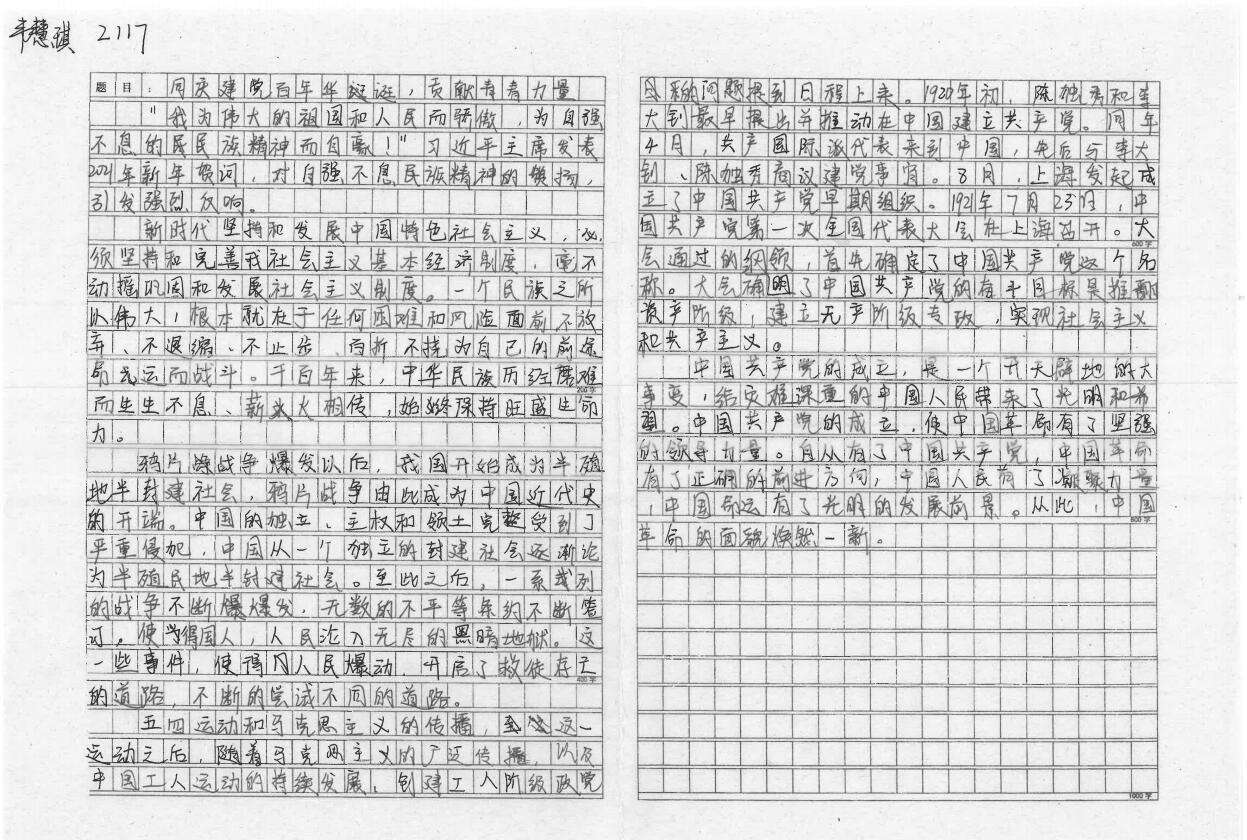 韦慧琪 2117
题目：同庆建党百年华诞，贡献青春力量
"我为伟大的祖国和人民而骄傲，为自强
不息的民民族精神而自豪！"习近平主席发表
2021年新年贺词，对自强不息民族精神的赞扬，
引发强烈反响。
新时代坚持和发展中国特色社会主义，必
须坚持和完善我社会主义基本经济制度，毫不
动摇巩固和发展社会主义制度。一个民族之所
以伟大，根本就在于任何困难和风险面前不放
弃、不退缩、不止步、百折不挠为自己的前途
命运而战斗。千百年来，中华民族历经磨难
而生生不息、薪火相传，始终保持旺盛生命
力。
鸦片战争爆发以后，我国开始成为半殖
地半封建社会，鸦片战争由此成为中国近代史
的开端。中国的独立、主权和领土完整受到了
严重侵犯，中国从一个独立的封建社会逐渐沦
为半殖民地半封建社会。至此之后，一系列
的战争不断爆发，无数的不平等条约不断签
订。使得国人，人民沦入无尽的黑暗地狱。这
一些事件，使得人民爆动，开启了救徒存亡
的道路，不断的尝试不同的道路。
五四运动和马克思主义的传播，这一
运动之后，随着马克思主义的广泛传播，以及
中国工人运动的持续发展，创建工人阶级政党
的问题提到日程上来。1920年初，陈独秀和李
大钊最早提出并推动在中国建立共产党。同年
4月，共产国际派代表来到中国，先后与李大
钊、陈独秀商议建党事宜。8月，上海发起成
立了中国共产党早期组织。1921年7月23日，中
国共产党第一次全国代表大会在上海召开。大
会通过的纲领，首先确定了中国共产党这个名
称。大会确明了中国共产党的奋斗目标是推翻
资产阶级，建立无产阶级专政，实现社会主义
和共产主义。
中国共产党的成立，是一个开天辟地的大
事变，给灾难深重的中国人民带来了光明和希
望。中国共产党的成立，使中国革命有了坚强
的领导力量。自从有了中国共产党，中国革命
有了正确的前进方向，中国人民有了凝聚力量
，中国命运有了光明的发展前景。从此，中国
革命的面貌焕然一新。
200字
400字
600字
800字
1000字